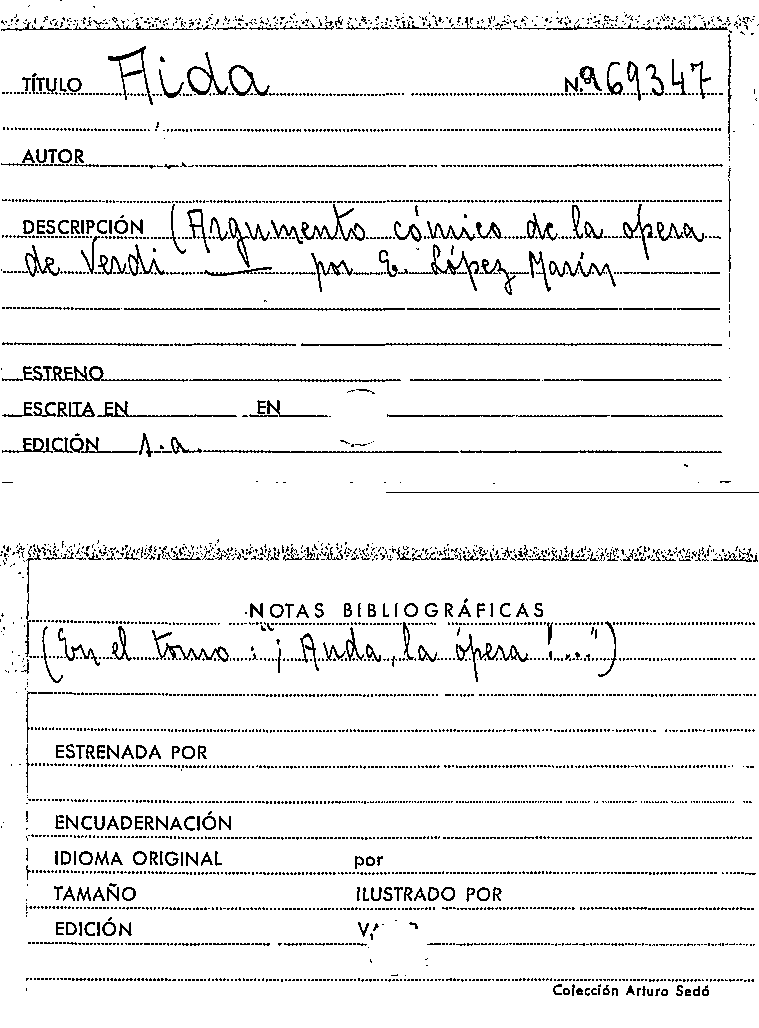 TÍTULO Aida Nº 69347
AUTOR
DESCRIPCIÓN (Argumento cómico de la opera
de Verdi — por E. López Marín
ESTRENO
ESCRITA EN EN
EDICIÓN s.a.
NOTAS BIBLIOGRÁFICAS
(En el tomo: "¡Anda, la ópera!...")
ESTRENADA POR
ENCUADERNACIÓN
IDIOMA ORIGINAL por
TAMAÑO ILUSTRADO POR
EDICIÓN
Colección Arturo Sedó